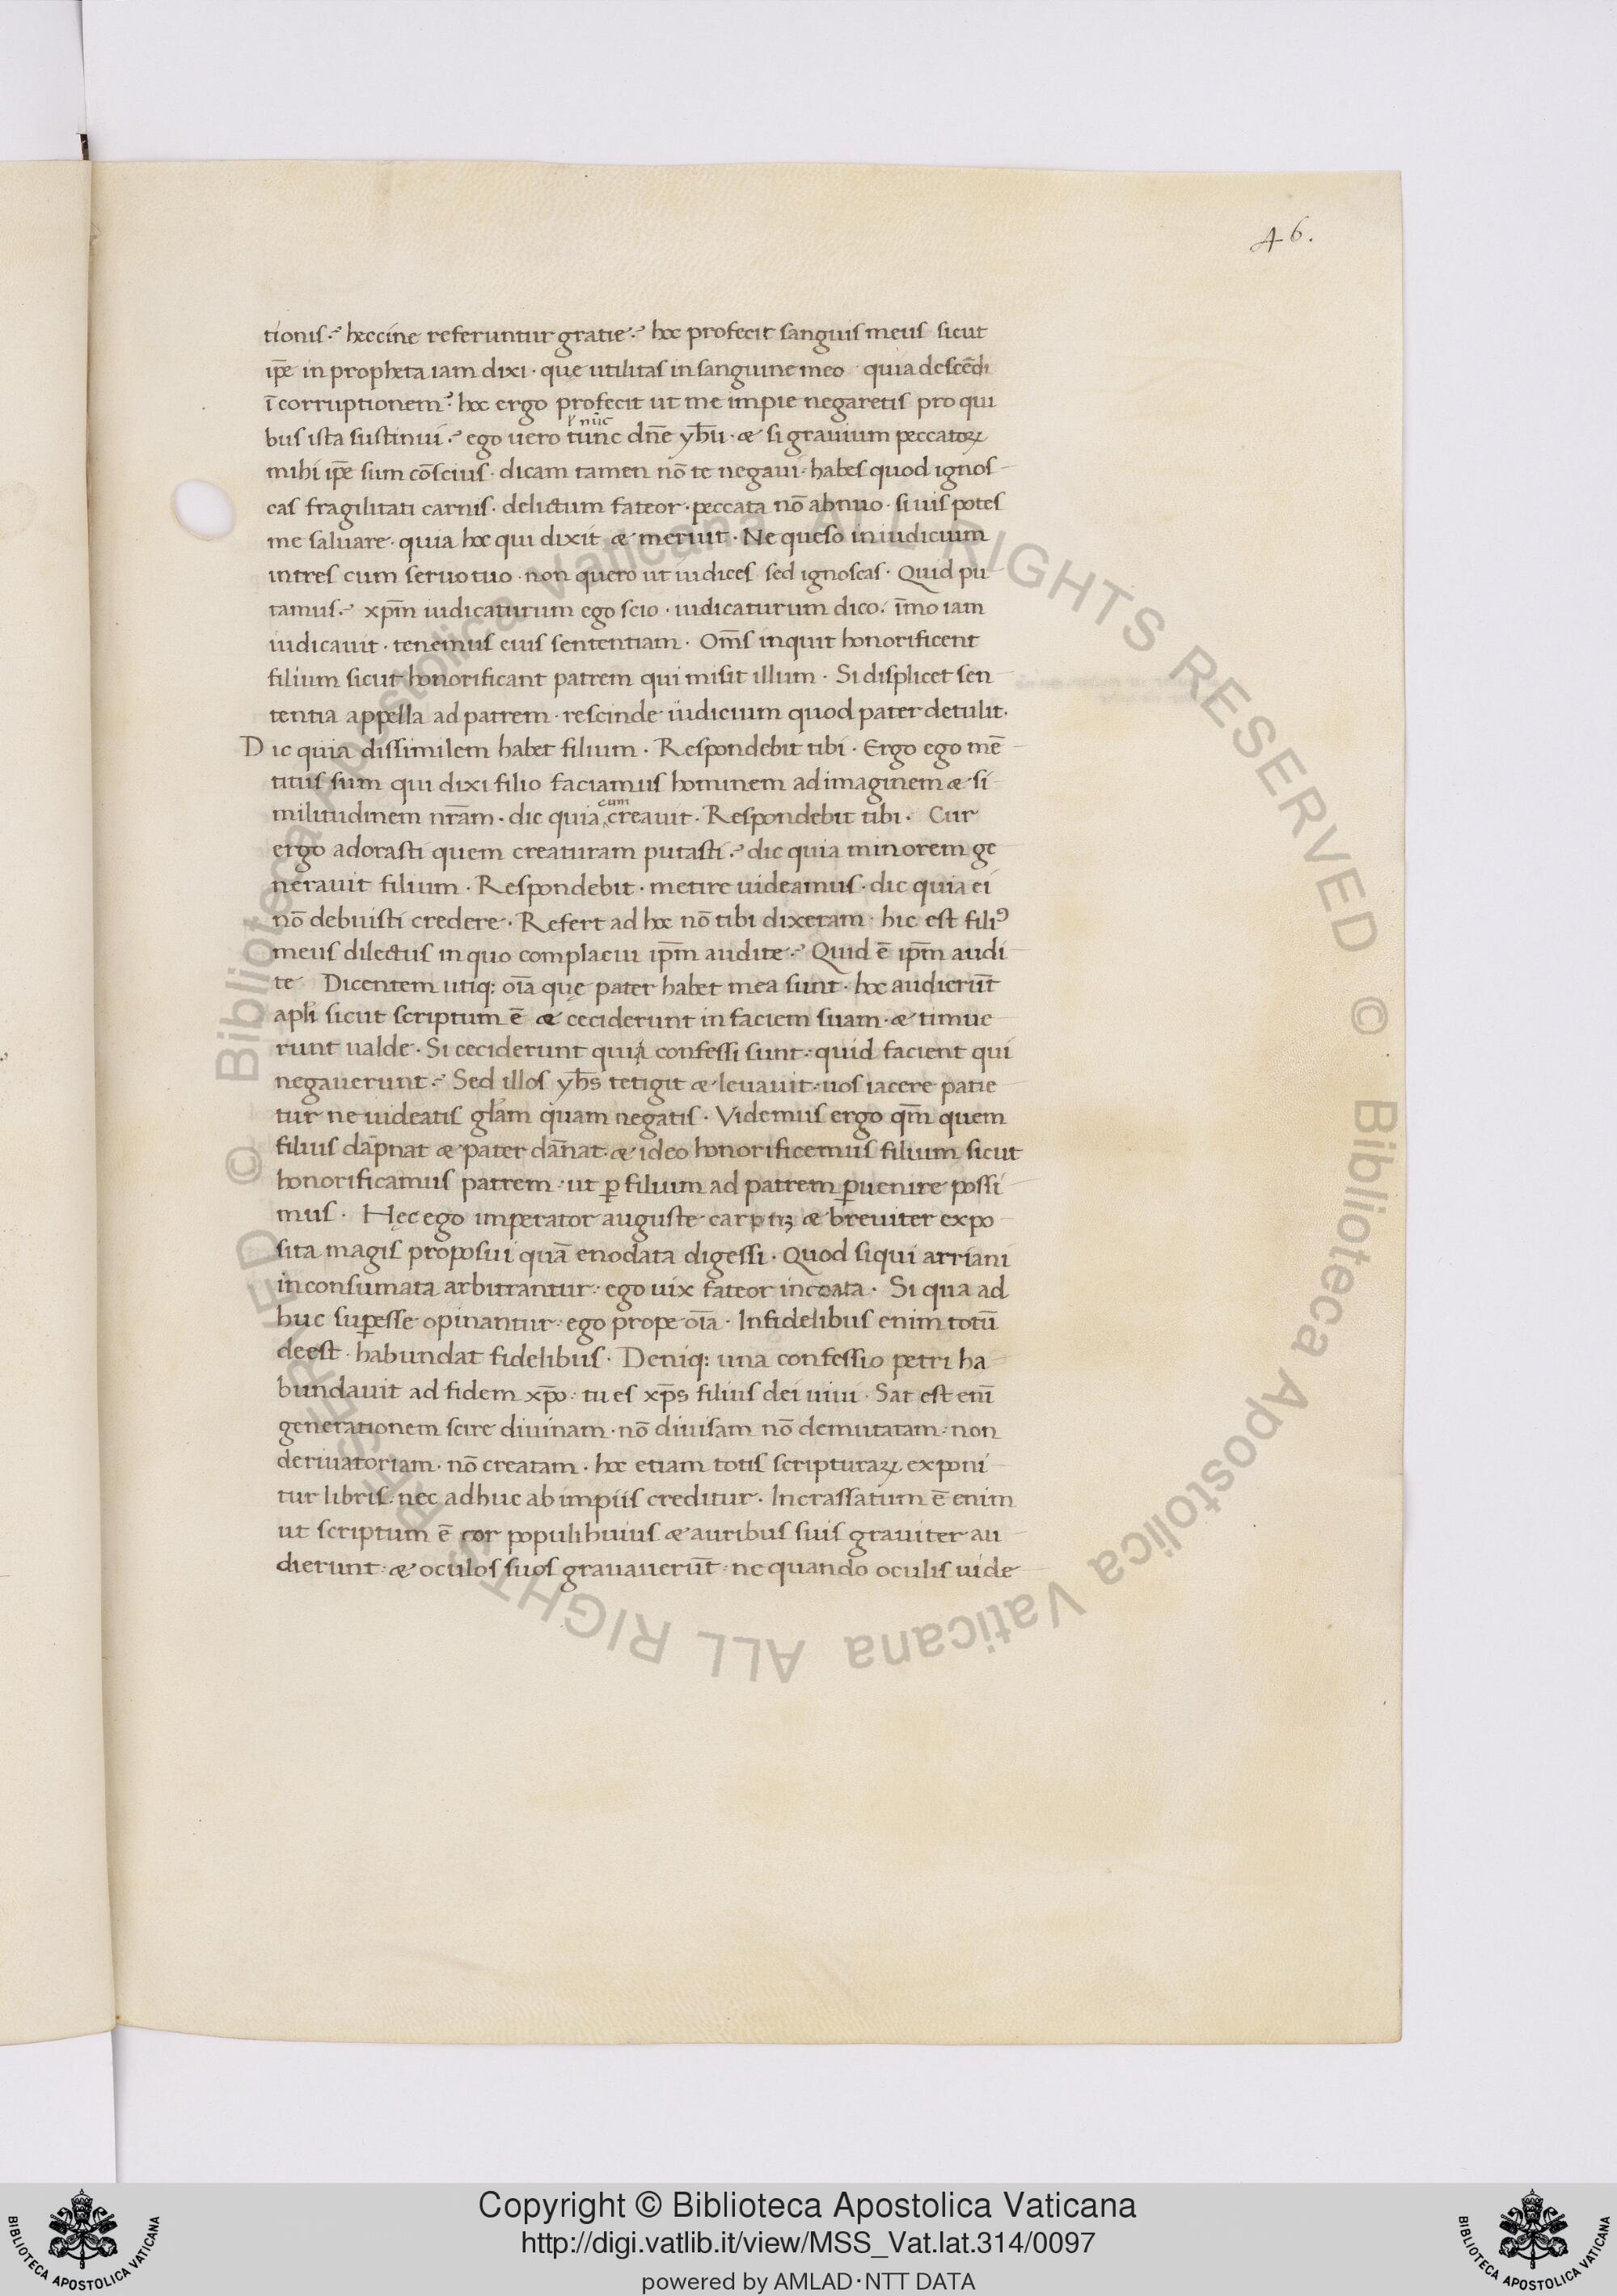 46.
tionis? heccine referuntur gratie? hoc profecit sanguis meus sicut
ip̄e in propheta iam dixi · que utilitas in sanguine meo quia descēdi
ī corruptionem? hoc ergo profecit ut me impie negaretis pro qui
l' nūc
bus ista sustinui? ego uero tunc dn̄e yħu · æ si grauium peccatoꝝ
mihi ip̄e sum cōscius · dicam tamen nō te negaui · habes quod ignos
cas fragilitati carnis · delictum fateor · peccata nō abnuo · si uis potes
me saluare · quia hoc qui dixit æ meruit · Ne queso in iudicium
intres cum seruo tuo · non quero ut iudices sed ignoscas · Quid pu
tamus? xp̄m iudicaturum ego scio · iudicaturum dico · īmo iam
iudicauit · tenemus eius sententiam · Om̄s inquit honorificent
filium sicut honorificant patrem qui misit illum · Si displicet sen
tentia appella ad patrem · rescinde iudicium quod pater detulit ·
Dic quia dissimilem habet filium · Respondebit tibi · Ergo ego mē
titus sum qui dixi filio faciamus hominem ad imaginem æ si
cum
militudinem nr̄am · dic quia creauit · Respondebit tibi · Cur
ergo adorasti quem creaturam putasti? dic quia minorem ge
nerauit filium · Respondebit · metire uideamus · dic quia ei
nō debuisti credere · Refert ad hoc nō tibi dixeram · hic est filiꝰ
meus dilectus in quo complacui ip̄m audite? Quid ē ip̄m audi
te Dicentem utiq: oīa quę pater habet mea sunt · hoc audierūt
apłi sicut scriptum ē æ ceciderunt in faciem suam · æ timue
runt ualde · Si ceciderunt quia confessi sunt · quid facient qui
negauerunt? Sed illos yħs tetigit æ leuauit · uos iacere patie
tur ne uideatis glām quam negatis · Videmus ergo qm̄ quem
filius dāpnat æ pater dānat · æ ideo honorificemus filium sicut
honorificamus patrem · ut ꝑ filium ad patrem ꝑuenire possi
mus · Hęc ego imperator auguste carptꝫ æ breuiter expo
sita magis proposui quā enodata digessi · Quod siqui arriani
inconsumata arbitrantur · ego uix fateor incoata · Si qua ad
huc suꝑesse opinantur · ego prope oīa · Infidelibus enim totū
deest · habundat fidelibus · Deniq: una confessio petri ha
bundauit ad fidem xp̄o · tu es xp̄s filius dei uiui · Sat est enī
generationem scire diuinam · nō diuisam nō demutatam · non
deriuatoriam · nō creatam · hoc etiam totis scripturaꝝ exponi
tur libris · nec adhuc ab impiis creditur · Incrassatum ē enim
ut scriptum ē cor populi huius æ auribus suis grauiter au
dierunt · æ oculos suos grauauerūt · ne quando oculis uide
© Biblioteca Apostolica Vaticana ALL RIGHTS RESERVED © Biblioteca Apostolica Vaticana ALL RIGHTS RESERVED
Copyright © Biblioteca Apostolica Vaticana
http://digi.vatlib.it/view/MSS_Vat.lat.314/0097
powered by AMLAD·NTT DATA
BIBLIOTECA APOSTOLICA VATICANA
BIBLIOTECA APOSTOLICA VATICANA